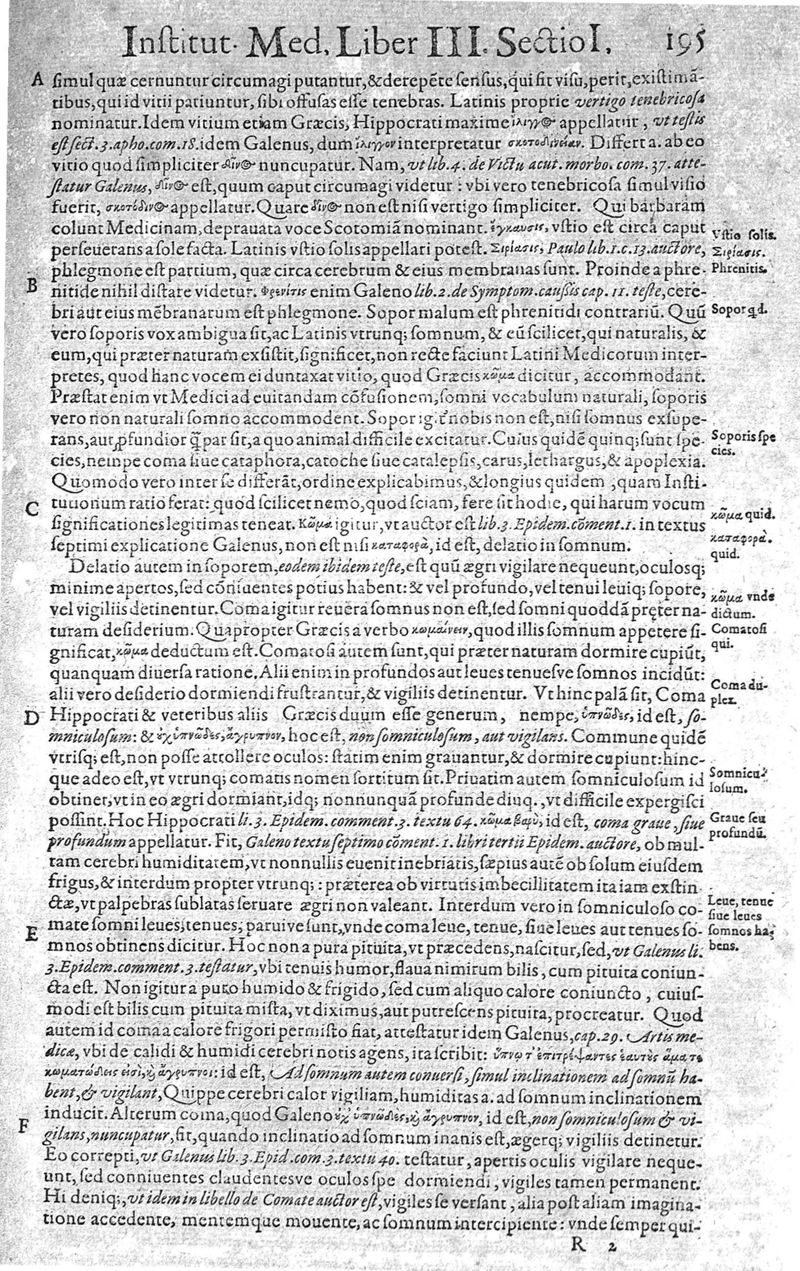 Institut. Med. Liber III. Sectio I. 195
A simul quæ cernuntur circumagi putantur,& derepẽte sensus, qui fit visu, perit, existimã-
tibus, qui id vitii patiuntur, sibi offusas esse tenebras. Latinis proprie vertigo tenebricosa
nominatur. Idem vitium etiam Græcis, Hippocrati maxime ἴλιγγος appellatur, vt testis
est sect. 3. apho. com. 18. idem Galenus, dum ἴλιγγον interpretatur σκοτοδινείαν. Differt a. ab eo
vitio quod simpliciter δῖνος nuncupatur. Nam, vt lib. 4. de Victu acut. morbo. com. 37. atte-
statur Galenus, δῖνος est, quum caput circumagi videtur: vbi vero tenebricosa simul visio
fuerit, σκοτόδινος appellatur. Quare δῖνος non est nisi vertigo simpliciter. Qui barbaram
colunt Medicinam, deprauata voce Scotomiã nominant. ἔγκαυσις, vstio est circa caput
perseuerans a sole facta. Latinis vstio solis appellari potest. Σειρίασις, Paulo lib. 1. c. 13. auctore,
Vstio solis.
Σειρίασις.
phlegmone est partium, quæ circa cerebrum & eius membranas sunt. Proinde a phre-
Phrenitis.
B nitide nihil distare videtur. Φρενῖτις enim Galeno lib. 2. de Symptom. caussis cap. 11. teste, cere-
bri aut eius mẽbranarum est phlegmone. Sopor malum est phrenitidi contrariũ. Quũ
Sopor qd.
vero soporis vox ambigua sit, ac Latinis vtrunq; somnum, & eũ scilicet, qui naturalis, &
eum, qui præter naturam exsistit, significet, non recte faciunt Latini Medicorum inter-
pretes, quod hanc vocem ei duntaxat vitio, quod Græcis κῶμα dicitur, accommodant.
Præstat enim vt Medici ad euitandam cõfusionem, somni vocabulum naturali, soporis
vero non naturali somno accommodent. Sopor ig. nobis non est, nisi somnus exsupe-
rans, aut ꝓfundior q̃ par sit, a quo animal difficile excitatur. Cuius quidẽ quinq; sunt spe-
Soporis spe
cies.
cies, nempe coma siue cataphora, catoche siue catalepsis, carus, lethargus, & apoplexia.
Quomodo vero inter se differãt, ordine explicabimus, & longius quidem, quam Insti-
C tutionum ratio ferat: quod scilicet nemo, quod sciam, fere sit hodie, qui harum vocum
significationes legitimas teneat. Κῶμα igitur, vt auctor est lib. 3. Epidem. cõment. 1. in textus
κῶμα quid.
septimi explicatione Galenus, non est nisi καταφορὰ, id est, delatio in somnum.
καταφορὰ.
quid.
Delatio autem in soporem, eodem ibidem teste, est quũ ægri vigilare nequeunt, oculosq;
minime apertos, sed cõniuentes potius habent: & vel profundo, vel tenui leuiq; sopore,
vel vigiliis detinentur. Coma igitur reuera somnus non est, sed somni quoddã pręter na-
κῶμα vnde
dictum.
turam desiderium. Quapropter Græcis a verbo κωμαίνειν, quod illis somnum appetere si-
gnificat, κῶμα deductum est. Comatosi autem sunt, qui præter naturam dormire cupiũt,
Comatosi
qui.
quanquam diuersa ratione. Alii enim in profundos aut leues tenuesve somnos incidũt:
alii vero desiderio dormiendi frustrantur, & vigiliis detinentur. Vt hinc palã sit, Coma
Coma du-
plex.
D Hippocrati & veteribus aliis Græcis duum esse generum, nempe, ὑπνῶδες, id est, so-
mniculosum: & ἐχ ὑπνῶδες, ἄγρυπνον, hoc est, non somniculosum, aut vigilans. Commune quidẽ
vtrisq; est, non posse attollere oculos: statim enim grauantur, & dormire cupiunt: hinc-
que adeo est, vt vtrunq; comatis nomen sortitum sit. Priuatim autem somniculosum id
Somnicu-
losum.
obtinet, vt in eo ægri dormiant, idq; nonnunquã profunde diuq., vt difficile expergisci
possint. Hoc Hippocrati li. 3. Epidem. comment. 3. textu 64. κῶμα βαρὺ, id est, coma graue, siue
Graue seu
profundũ.
profundum appellatur. Fit, Galeno textu septimo cõment. 1. libri tertii Epidem. auctore, ob mul-
tam cerebri humiditatem, vt nonnullis euenit inebriatis, sæpius autẽ ob solum eiusdem
frigus, & interdum propter vtrunq;: præterea ob virtutis imbecillitatem ita iam exstin
ctæ, vt palpebras sublatas seruare ægri non valeant. Interdum vero in somniculoso co-
Leue, tenue
siue leues
somnos ha-
bens.
E mate somni leues, tenues, paruive sunt, vnde coma leue, tenue, siue leues aut tenues so-
mnos obtinens dicitur. Hoc non a pura pituita, vt præcedens, nascitur, sed, vt Galenus li.
3. Epidem. comment. 3. testatur, vbi tenuis humor, flaua nimirum bilis, cum pituita coniun-
cta est. Non igitur a puro humido & frigido, sed cum aliquo calore coniuncto, cuius-
modi est bilis cum pituita mista, vt diximus, aut putrescens pituita, procreatur. Quod
autem id coma a calore frigori permisto fiat, attestatur idem Galenus, cap. 29. Artis me-
dicæ, vbi de calidi & humidi cerebri notis agens, ita scribit: ὕπνῳ τ' ἐπιτρέψαντες ἑαυτὲς ἅμα τε
κωματώδεις εἰσὶ, ϗ ἄγρυπνοι: id est, Ad somnum autem conuersi, simul inclinationem ad somnũ ha-
bent, & vigilant, Quippe cerebri calor vigiliam, humiditas a. ad somnum inclinationem
F inducit. Alterum coma, quod Galeno ἐχ ὑπνῶδες, ϗ ἄγρυπνον, id est, non somniculosum & vi-
gilans, nuncupatur, fit, quando inclinatio ad somnum inanis est, ægerq; vigiliis detinetur.
Eo correpti, vt Galenus lib. 3. Epid. com. 3. textu 40. testatur, apertis oculis vigilare neque-
unt, sed conniuentes claudentesve oculos spe dormiendi, vigiles tamen permanent.
Hi deniq;, vt idem in libello de Comate auctor est, vigiles se versant, alia post aliam imagina-
tione accedente, mentemque mouente, ac somnum intercipiente: vnde semper qui-
R 2